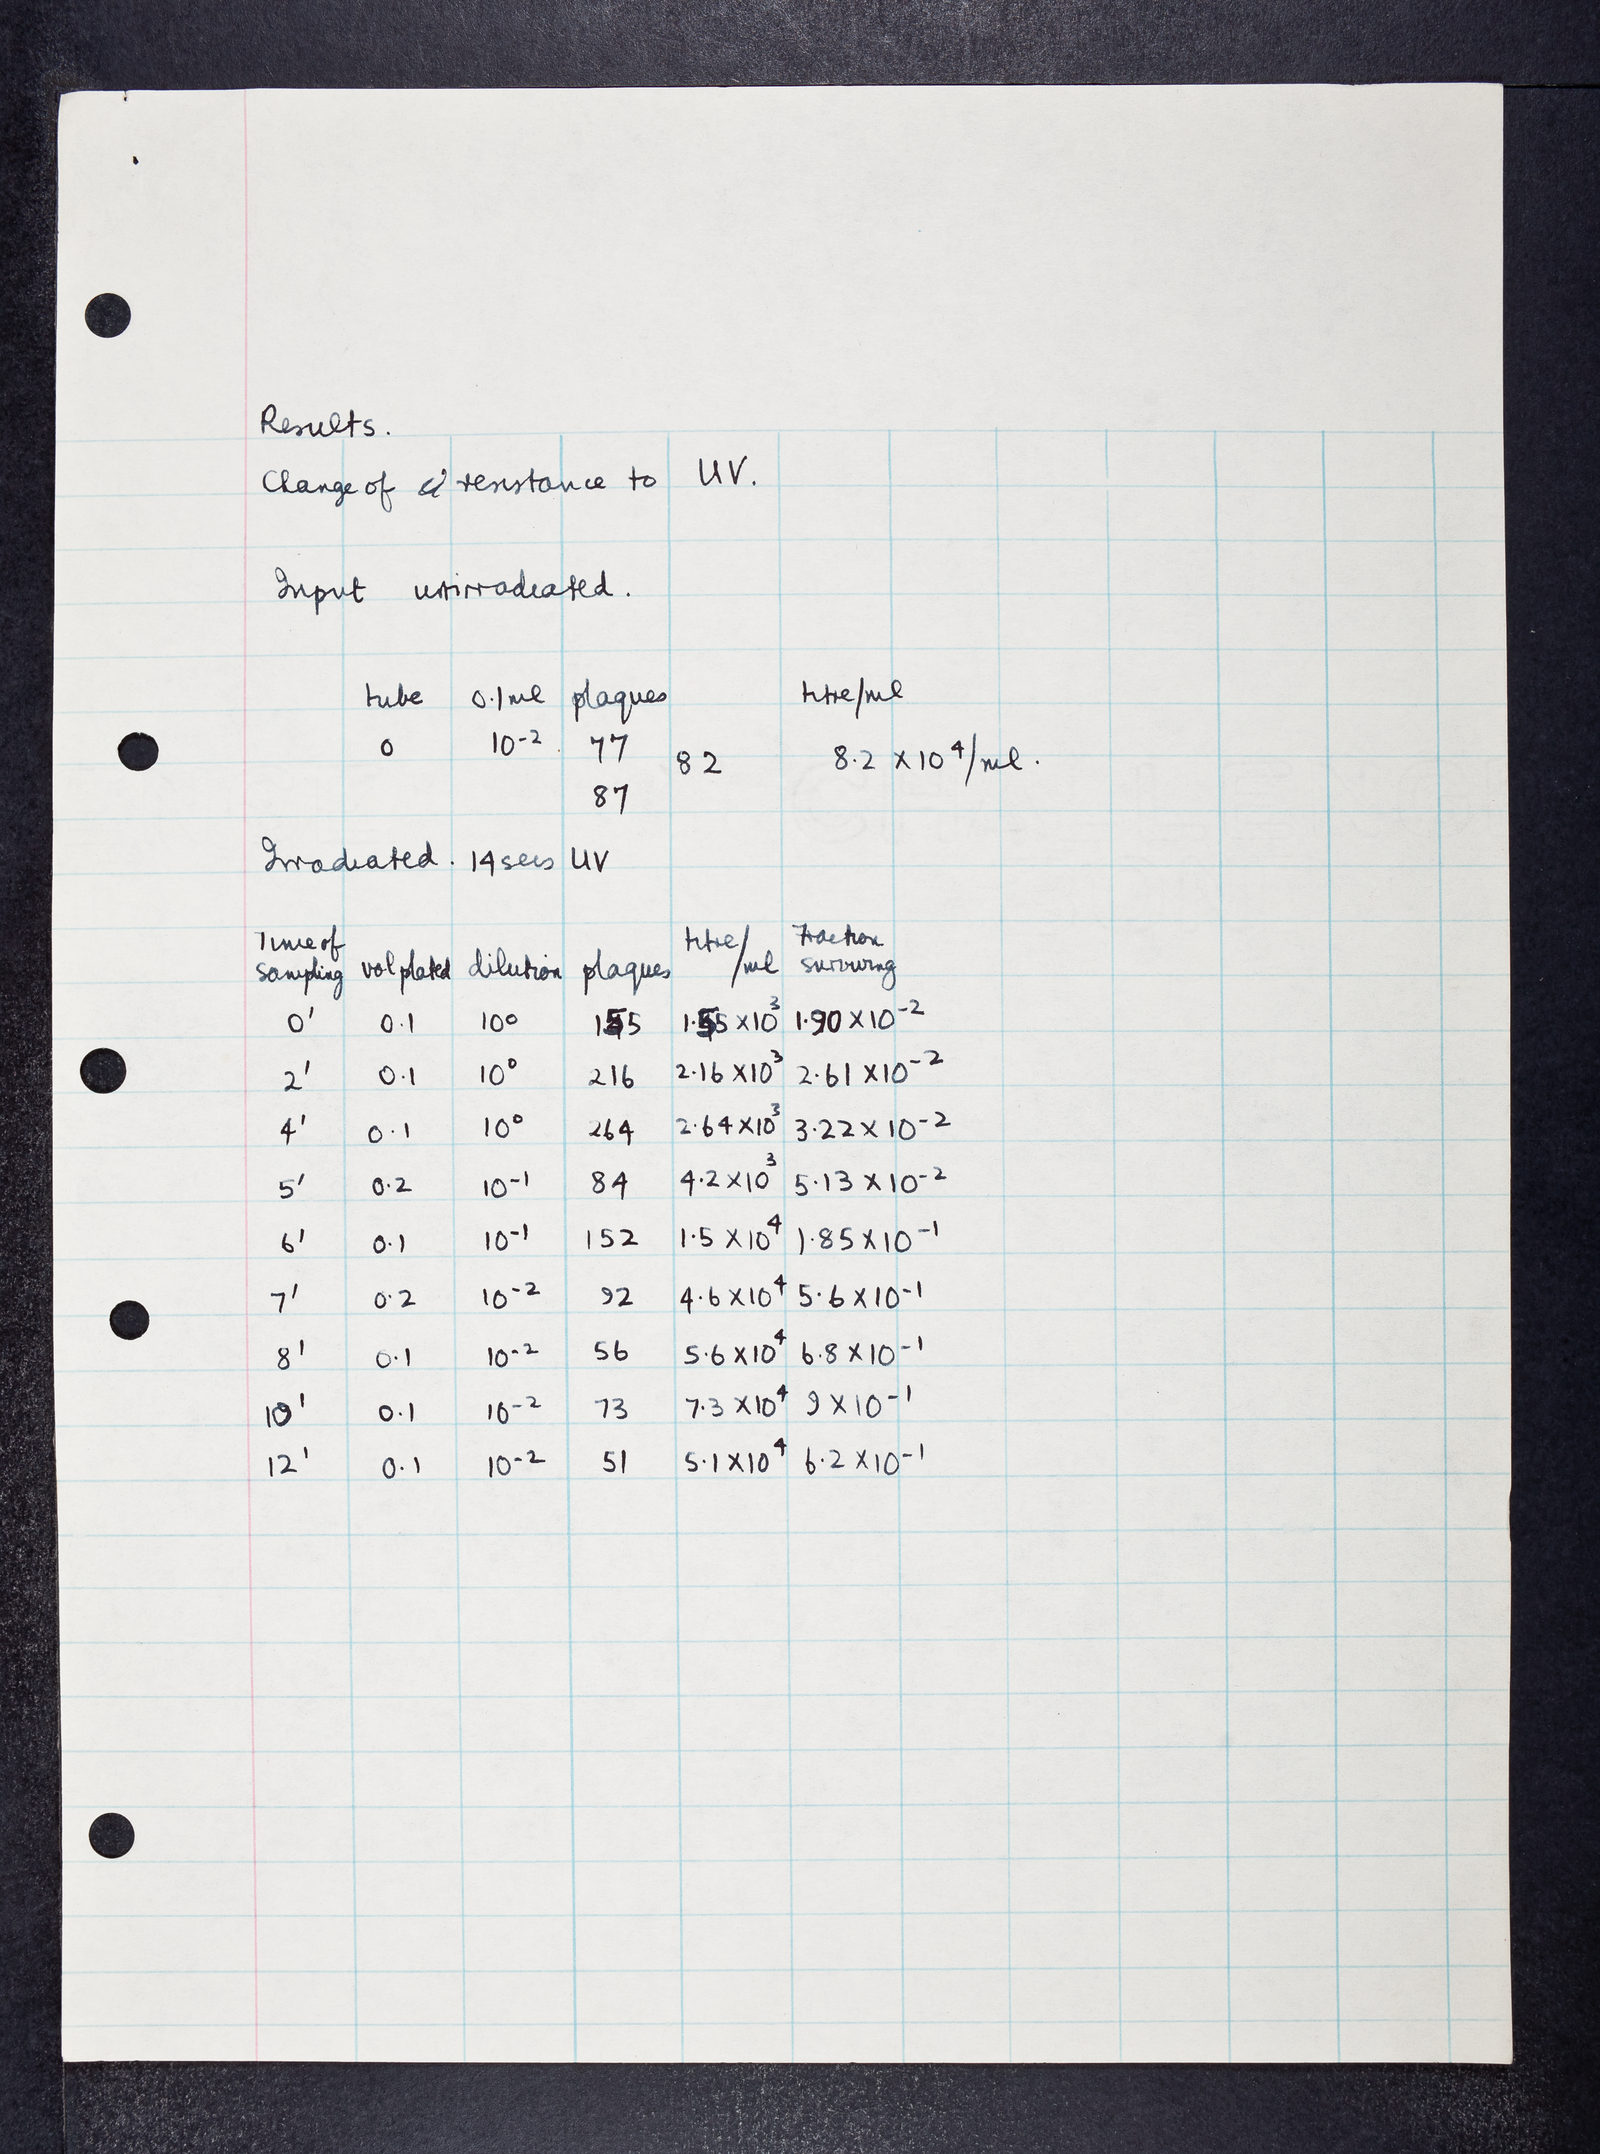 Results.
Change of resistance to UV.
Input unirradiated.
tube 0.1ml plaques titre/ml
0 10⁻² 77 82 8.2 × 10⁴/ml.
87
Irradiated. 14 secs UV
Time of sampling vol plated dilution plaques titre/ml fraction surviving
0' 0.1 10⁰ 155 1.55 × 10³ 1.90 × 10⁻²
2' 0.1 10⁰ 216 2.16 × 10³ 2.61 × 10⁻²
4' 0.1 10⁰ 264 2.64 × 10³ 3.22 × 10⁻²
5' 0.2 10⁻¹ 84 4.2 × 10³ 5.13 × 10⁻²
6' 0.1 10⁻¹ 152 1.5 × 10⁴ 1.85 × 10⁻¹
7' 0.2 10⁻² 92 4.6 × 10⁴ 5.6 × 10⁻¹
8' 0.1 10⁻² 56 5.6 × 10⁴ 6.8 × 10⁻¹
10' 0.1 10⁻² 73 7.3 × 10⁴ 9 × 10⁻¹
12' 0.1 10⁻² 51 5.1 × 10⁴ 6.2 × 10⁻¹